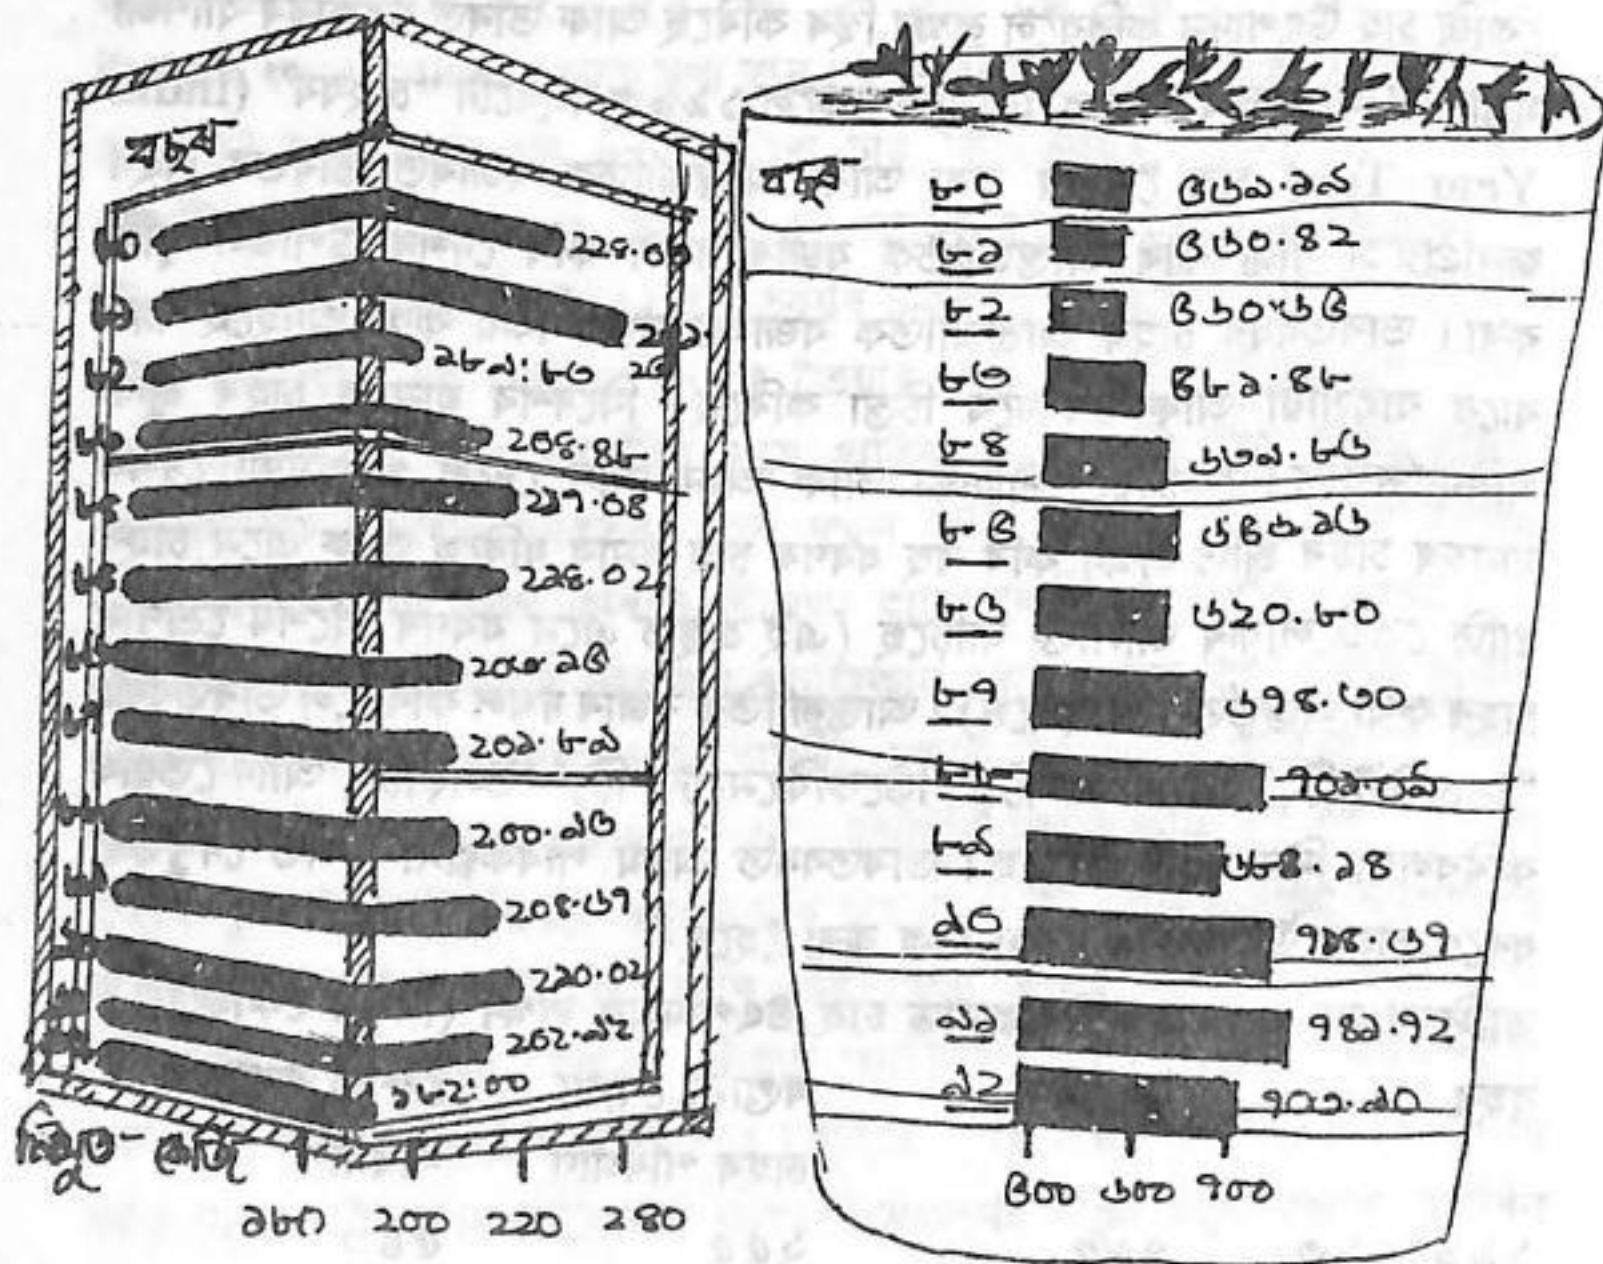 বছৰ
৮০ ২২৪.০৩
৮১
৮২ ১৮৯.৮৩
৮৩ ২০৪.৪৮
৮৪ ২১৭.০৪
৮৫ ২১৪.০২
৮৬ ২০৩.১৫
৮৭ ২০১.৮৯
৮৮ ২০০.৯৩
৮৯ ২০৪.৬৭
২১০.০২
২০২.৯২
১৮২.০০
নিযুত কেজি
১৮০ ২০০ ২২০ ২৪০
বছৰ
৮০ ৫৬৯.১৯
৮১ ৫৬০.৪২
৮২ ৫৬০.৬৫
৮৩ ৫৮১.৪৮
৮৪ ৬৩৯.৮৬
৮৫ ৬৫৬.১৬
৮৬ ৬২০.৮০
৮৭ ৬৭৪.৩০
৮৮ ৭০১.০৯
৮৯ ৬৮৪.১৪
৯০ ৭১৪.৬৭
৯১ ৭৪১.৭২
৯২ ৭০৩.৯০
৫০০ ৬০০ ৭০০